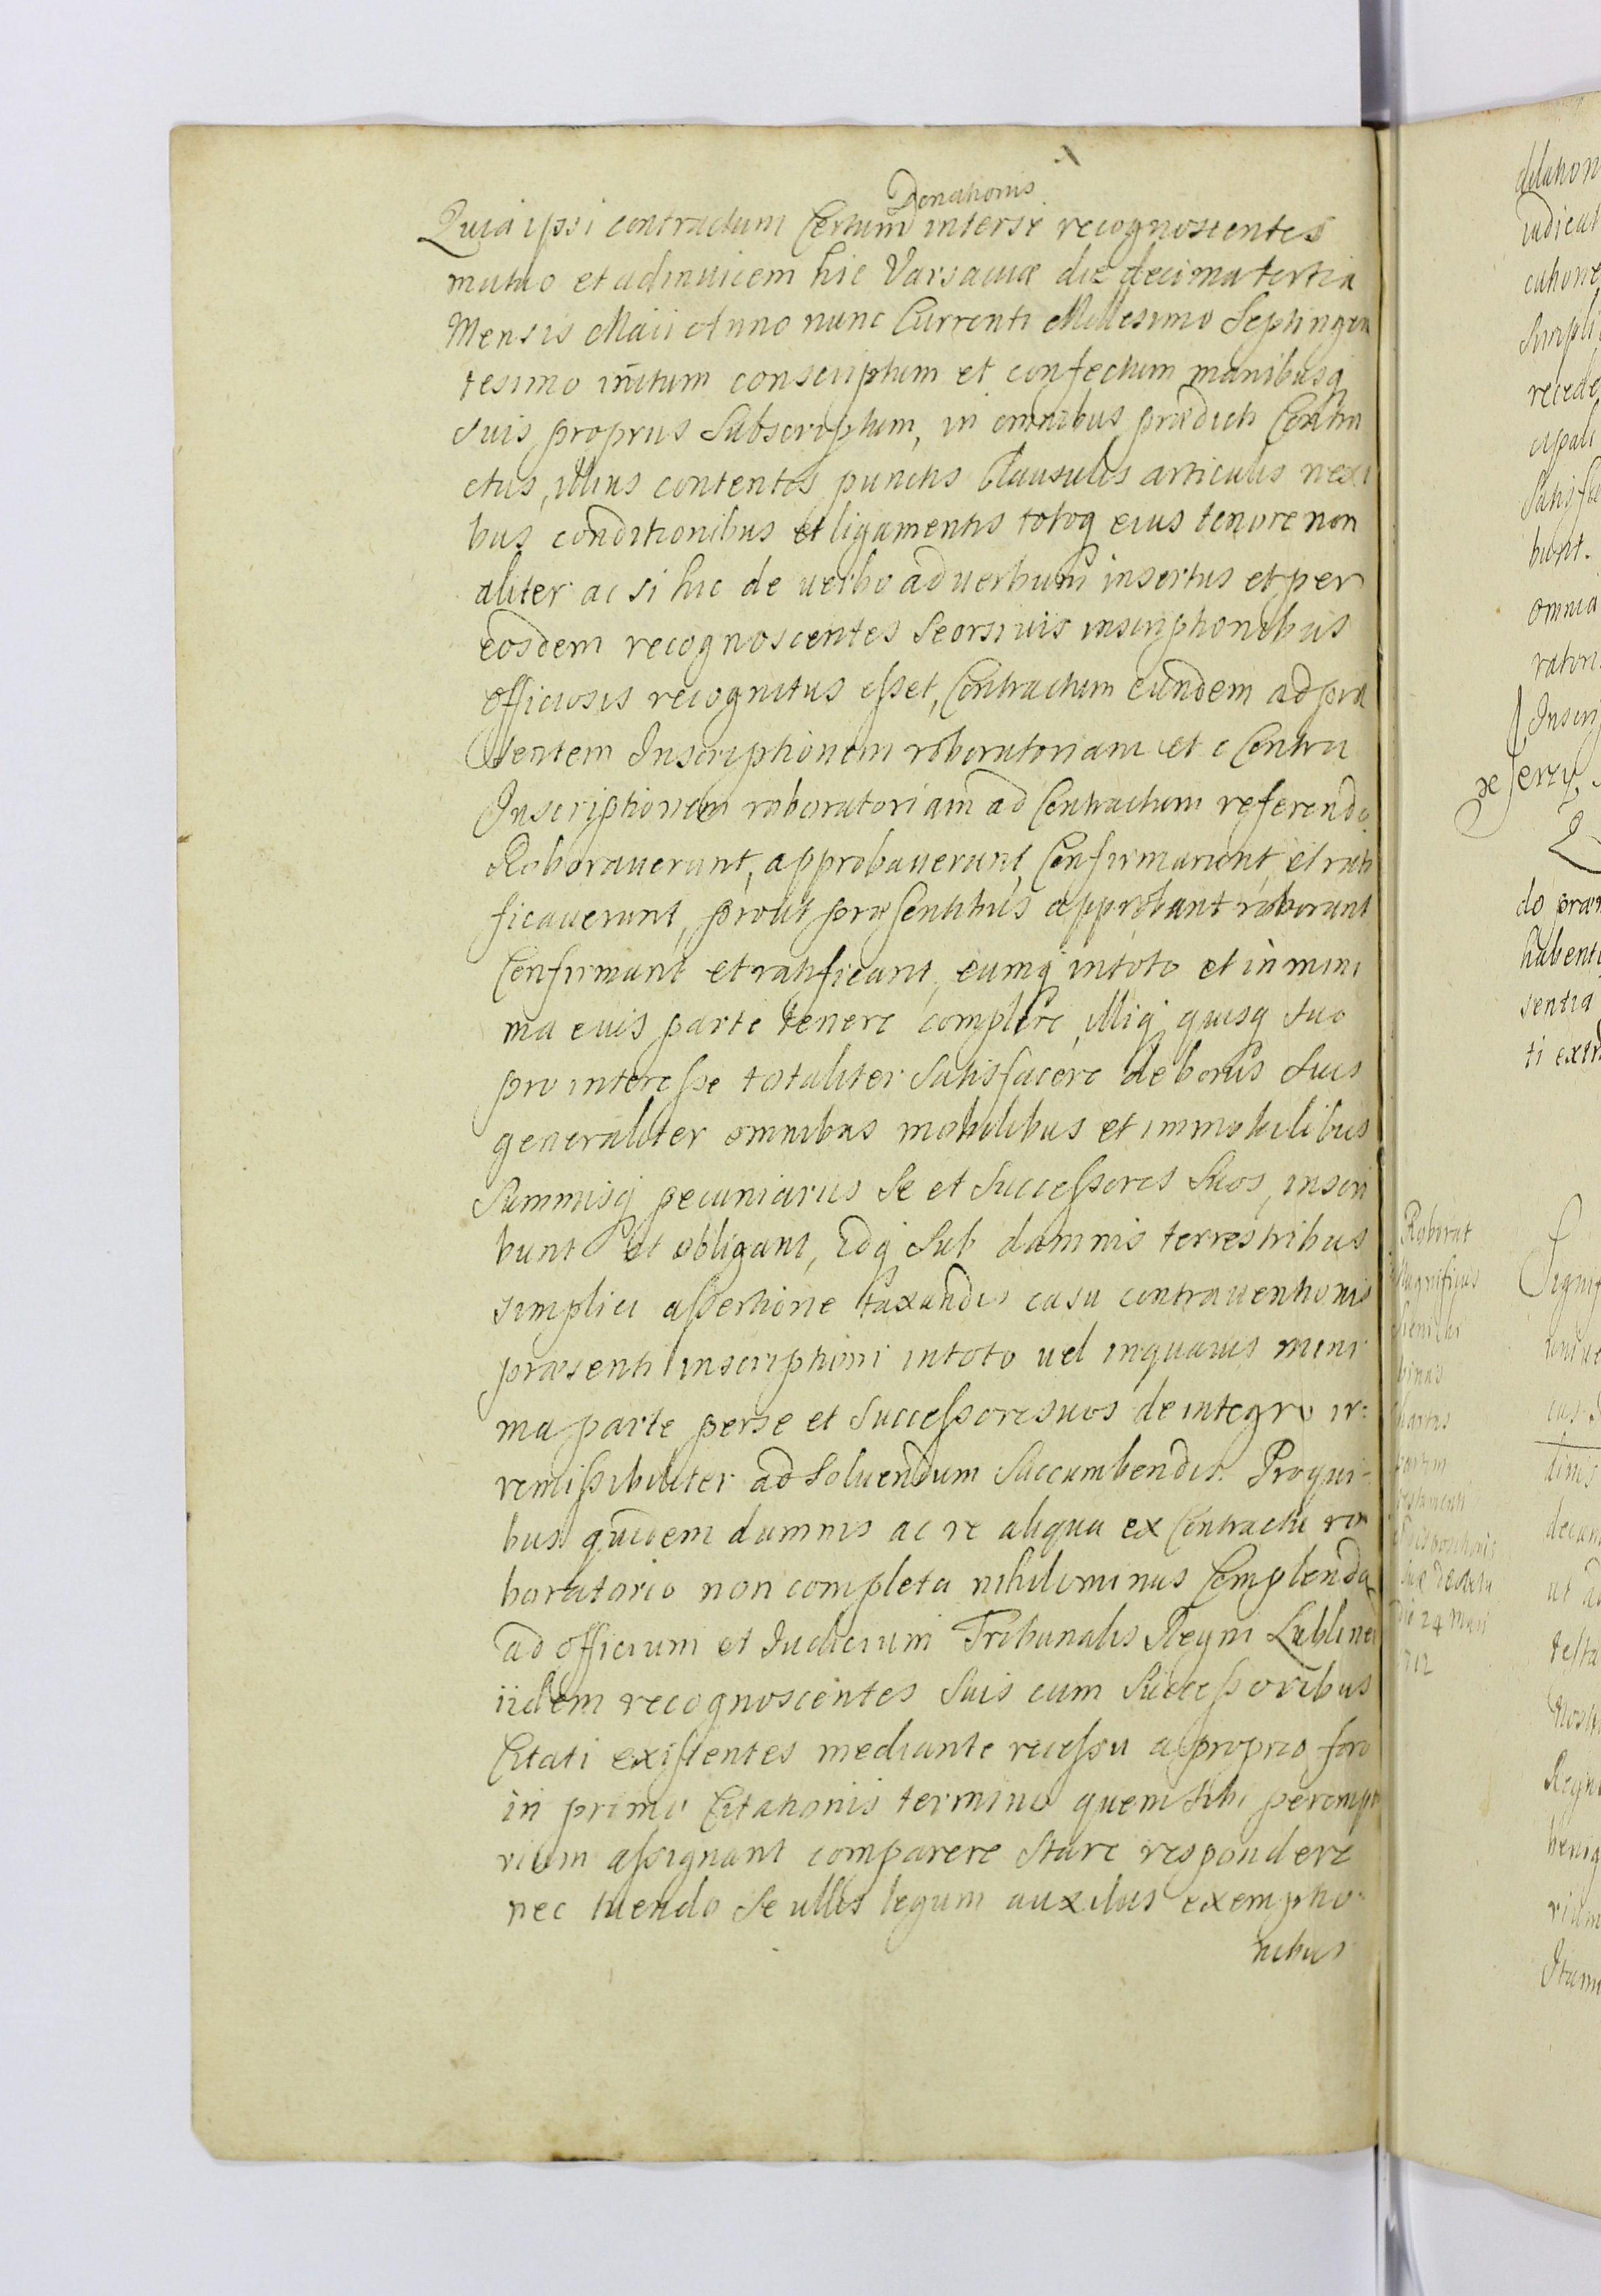 Donationis
Quia ipsi contractum Certum interse recognoscentes
mutuo et adinuicem hic Varsauiæ die decima tertia
Mensis Maii Anno nunc Currenti Millesimo Septingen
tesimo initum conscriptum et confectum manibusq
suis proprijs Subscriptum, in omnibus prædicti Contra
ctus, illius contentis punctis Clausulis articulis nexi
bus conditionibus et ligamentis totoq eius tenore non
aliter ac si hic de uerbo ad uerbum insertus et per
eosdem recognoscentes Seorsiuis inscriptionibus
officiosis recognitus esset, Contractum eundem ad præ
sentem Inscriptionem roboratoriam et e Contra
Inscriptionem roboratoriam ad Contractum referendo
Roborauerunt, approbauerunt, Confirmarunt et rati
ficauerunt, prout præsentibus approbant roborant
Confirmant et ratificant, eumq intoto et in mini
ma euis parte tenere complere, illiq quisq suo
pro interesse totaliter Satisfacere de bonis Suis
generaliter omnibus mobilibus et immobilibus
Summisq pecuniariis Se et Successores Suos, inscri
bunt et obligant, Idq Sub damnis terrestribus
simplici assertione taxandis casu contrauentionis
præsenti inscriptioni intoto uel inquauis mini
ma parte perse et Successores uos de integro ir:
remissibiliter ad Soluendum Succumbendis. Proqui-
bus quidem damnis ac re aliqua ex Contractu ro
boratorio non completa nihilominus Complenda
ad officium et Iudicium Tribunalis Regni Lublinen
iidem recognoscentes Suis cum Successoribus
Citati existentes mediante recessu a proprio foro
in primo Citationis termino quem Sibi perempto
rium assignant comparere Stare respondere
nec tuendo Se ullis legum auxilus exemptio-
nibus
delation
iudicat
cipali
Satisfa
bunt.
omnia
ratori
Inscrip
do præ
habenti
sentia
ti extra
Roborat
Magnificus
binas
partem
testamenti
dispositionis
suæ de data
die 24 Maii
712
ut a
testa
Regn
benig